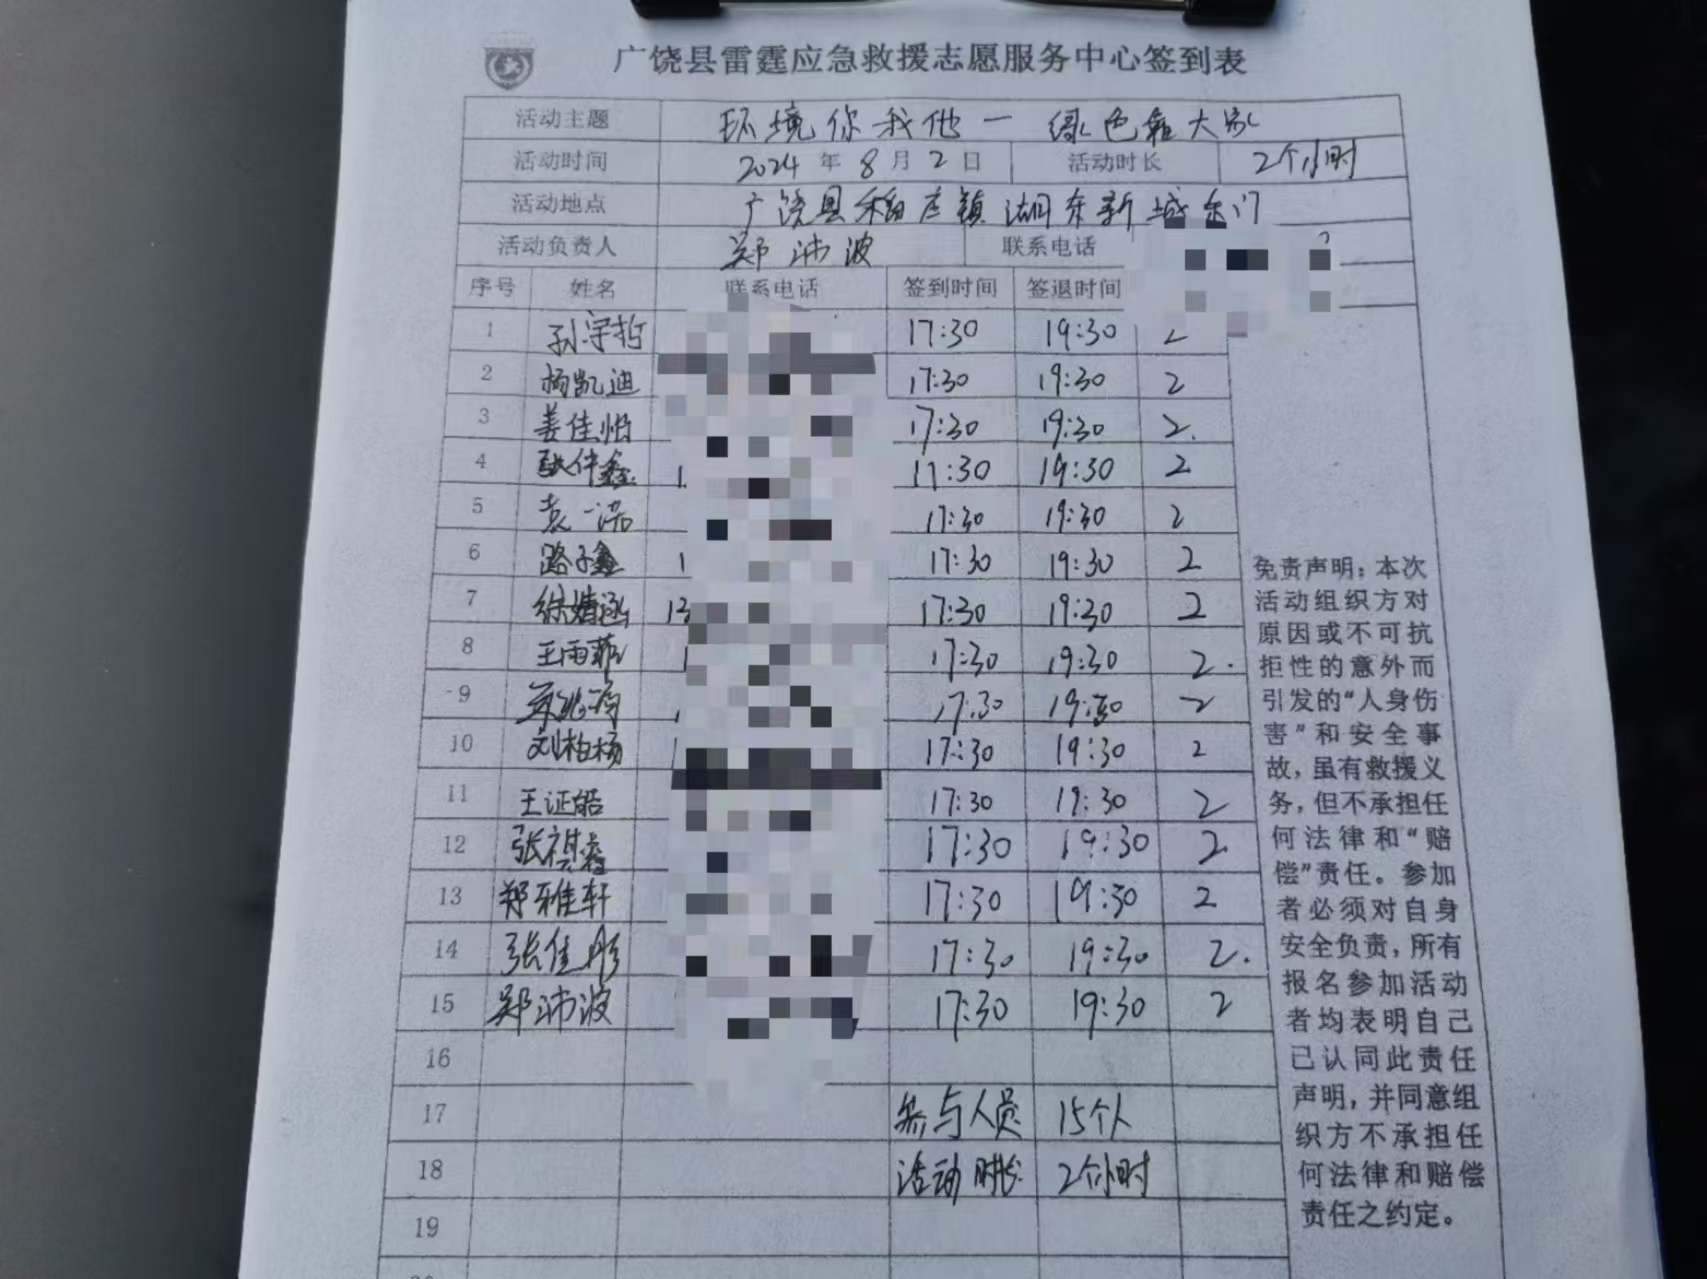 广饶县雷霆应急救援志愿服务中心签到表
活动主题 环境你我他一 绿色靠大家
活动时间 2024 年 8 月 2 日 活动时长 2个小时
活动地点 广饶县稻庄镇湖东新城东门
活动负责人 郑沛波 联系电话
序号 姓名 联系电话 签到时间 签退时间
1 孙宇哲 17:30 19:30 2
2 杨凯迪 17:30 19:30 2
3 姜佳怡 17:30 19:30 2.
4 张伴鑫 1 17:30 19:30 2
5 袁一诺 17:30 19:30 2
6 路子鑫 1 17:30 19:30 2
7 徐婧涵 13 17:30 19:30 2
8 王雨菲 1 17:30 19:30 2.
9 17:30 19:30 2
10 刘柏杨 1 17:30 19:30 2
11 王证皓 17:30 19:30 2
12 张祺睿 17:30 19:30 2
13 郑雅轩 17:30 19:30 2
14 张佳彤 17:30 19:30 2.
15 郑沛波 17:30 19:30 2
16
17 参与人员 15个人
18 活动时长 2个小时
19
免责声明：本次
活动组织方对
原因或不可抗
拒性的意外而
引发的“人身伤
害”和安全事
故，虽有救援义
务，但不承担任
何法律和“赔
偿”责任。参加
者必须对自身
安全负责，所有
报名参加活动
者均表明自己
已认同此责任
声明，并同意组
织方不承担任
何法律和赔偿
责任之约定。